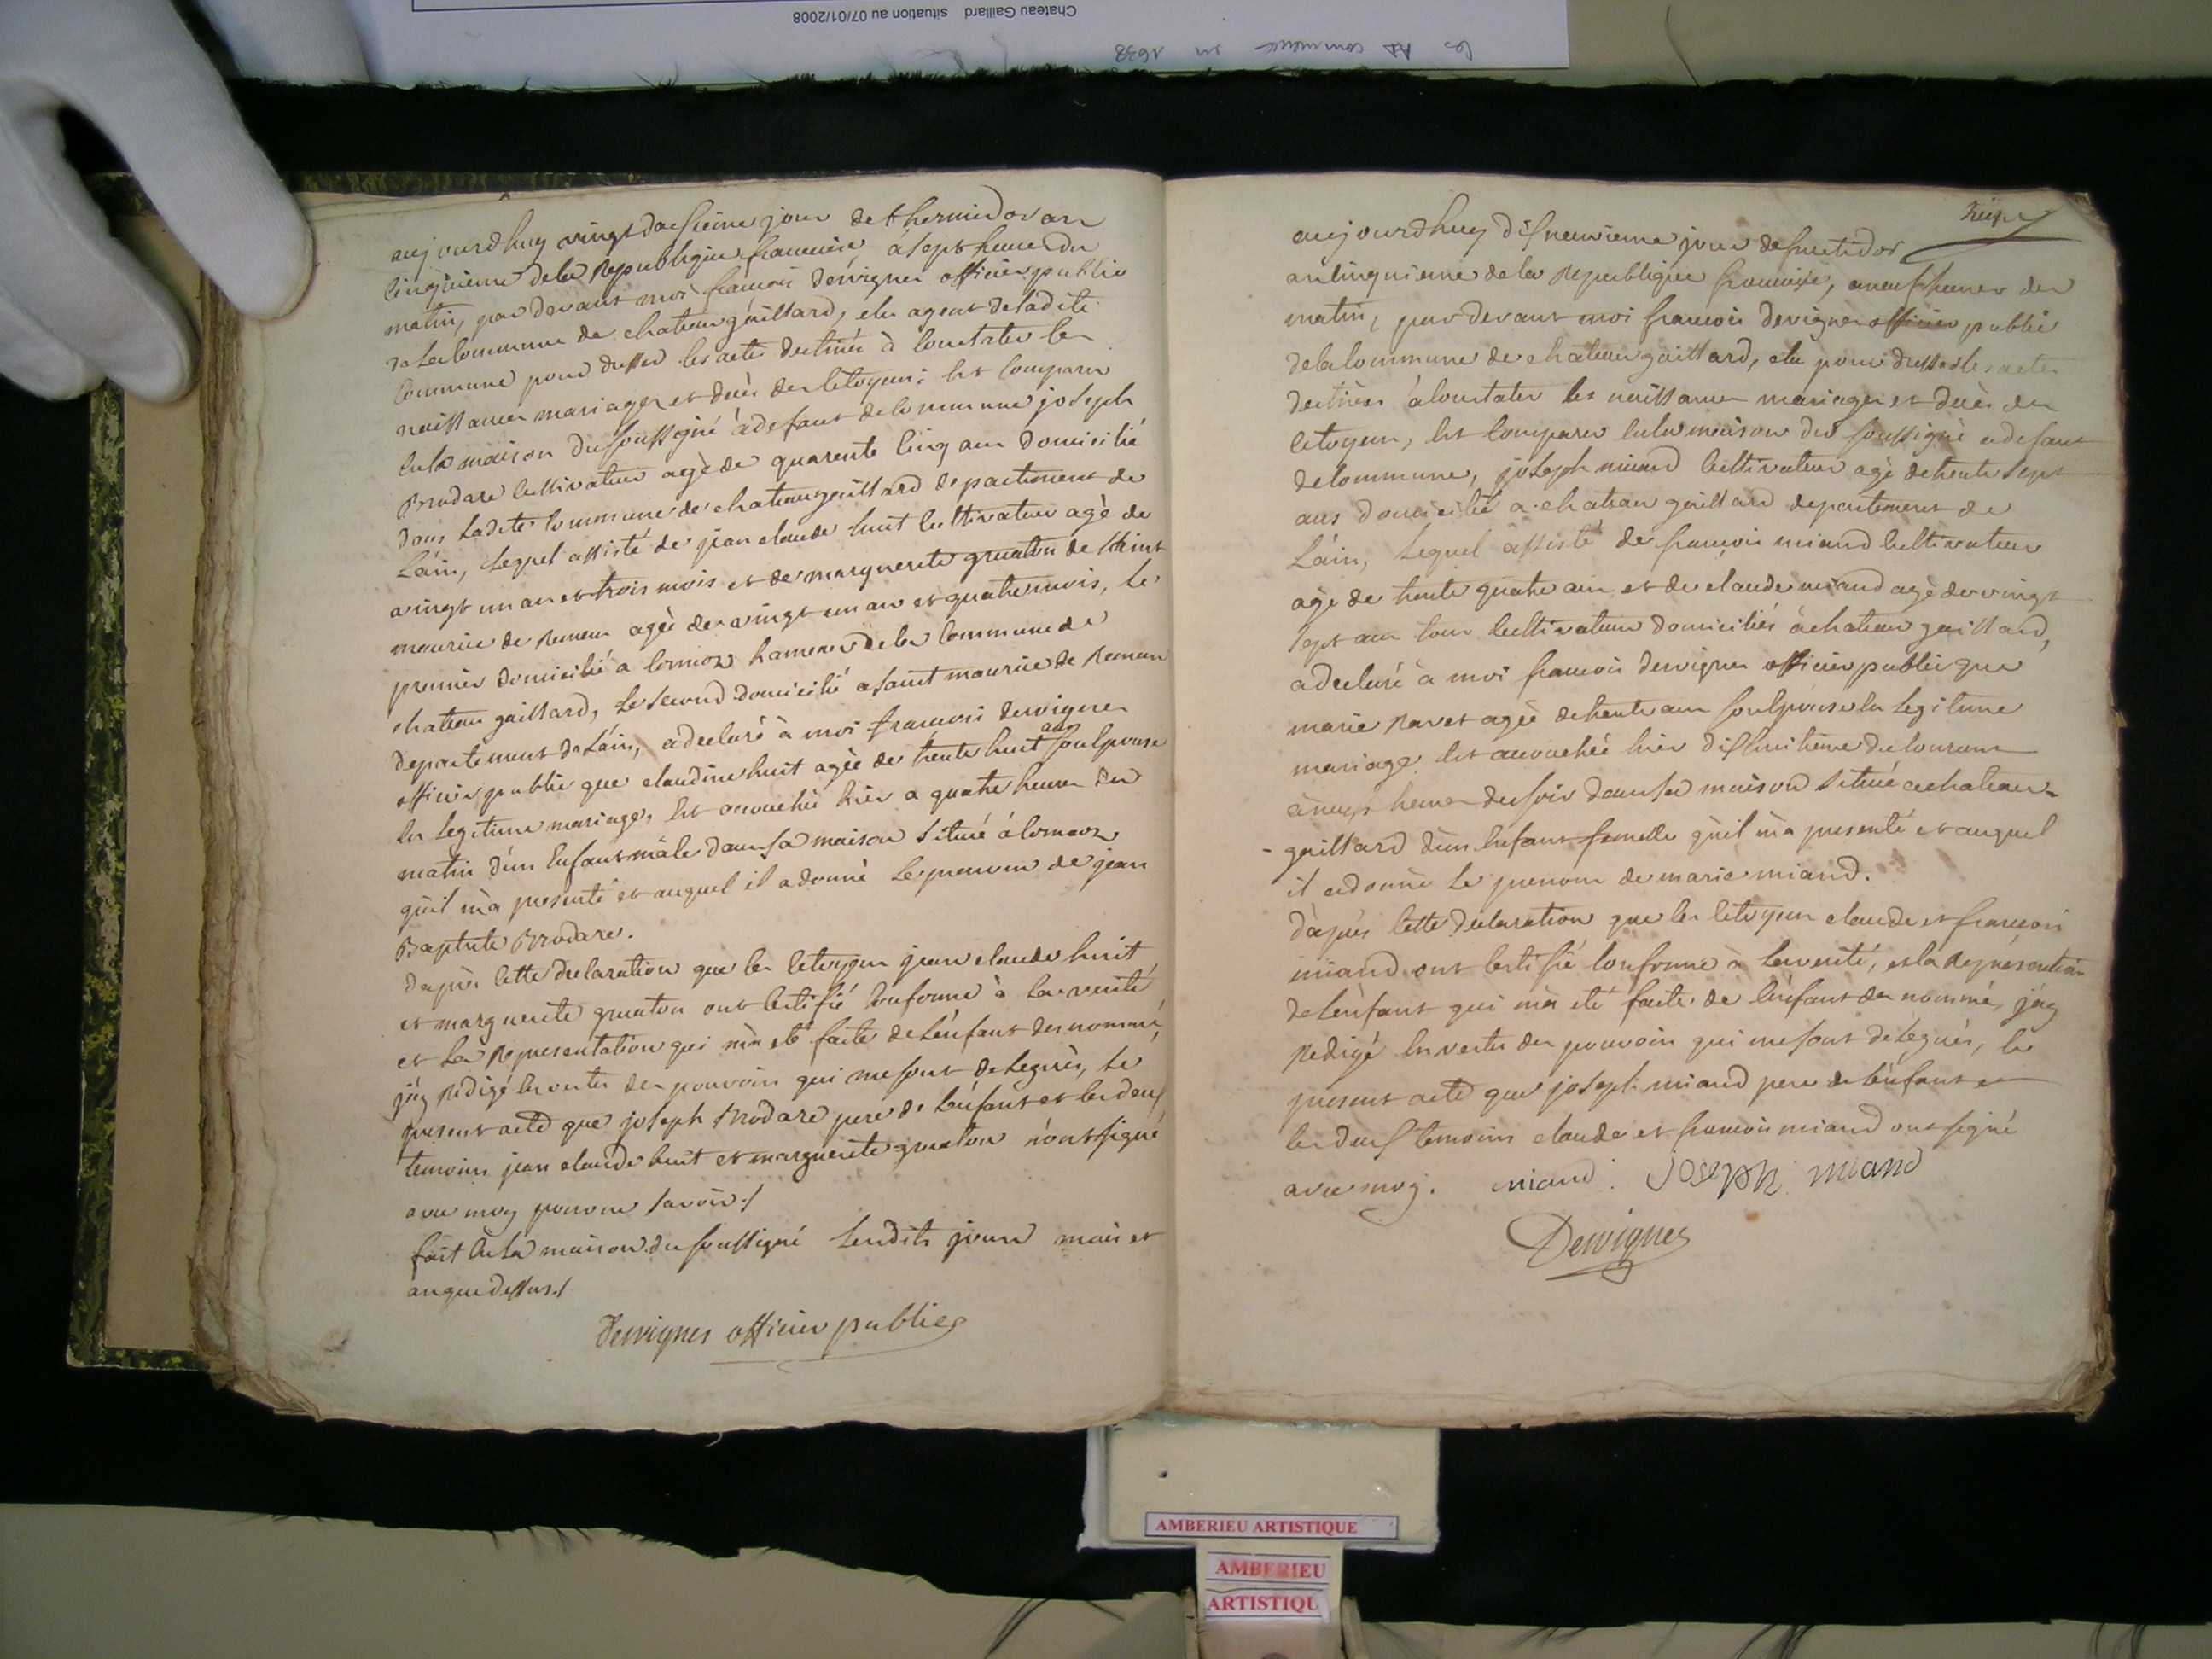 Chateau Gaillard situation au 07/01/2008
les commence en 1692
aujourdhuy vingt deusieme jour de thermidor an
cinquieme dela Republique francaise, à sept heures du
matin, par devant moi francois dervignes officier public
de la Commune de chateau gaillard, elu agent de ladite
Commune pour dresser les actes destinés à Constater les
naissances mariages et decès des Citoyens; Est Comparu
En la maison du soussigné à defaut de Commune joseph
Brodare Cultivateur agè de quarente Cinq ans domicilié
dans ladite Commune de chateau gaillard departement de
L'ain, Lequel assisté de jean claude huit Cultivateur agè de
vingt un an et trois mois et de marguerite gruaton de st
maurice de Remens agèe de vingt un an et quatre mois, le
premier domicilié a Cormoz hameaux de la Commune de
chateau gaillard, Le Second domicilié a saint maurice de Remens
departement de L'ain, a declaré à moi francois dervignes
officier public que claudine huit agèe de trente huit ans son Epouse
En Legitime mariage, Est accouchée hier a quatre heures du
matin d'un Enfant mâle dans sa maison Situé à Cormoz
qu'il m'a presenté et auquel il a donné Le prenom de jean
Baptiste Brodare.
d'après Cette declaration que les Citoyens jean claude huit
et marguerite gruaton ont Certifié Conforme à la verité
et la Representation qui m'a été faite de L'enfant denommé,
j'ay Redigé En vertu des pouvoirs qui me sont delegués, le
present acte que joseph Brodare pere de L'enfant et les deux
temoins jean claude huit et marguerite gruaton n'ont signé
avec moy pour ne savoir./
fait En la maison du soussigné Lesdits jour mois et
an que dessus./
dervignes officier public
aujourdhuy disneuvieme jour de fructidor
an Cinquieme de la Republique francaise, a neuf heures du
matin, par devant moi francois dervignes officier public
de la Commune de chateau gaillard, elu pour dresser les actes
destinés à Constater les naissances mariages et decès des
Citoyens, Est Comparu En la maison du soussigné a defaut
de Commune, joseph miand Cultivateur agè de trente Sept
ans domicilié a chateau gaillard departement de
L'ain, Lequel assisté de francois miand Cultivateur
agè de trente quatre ans et de claude miand agè de vingt
sept ans tous Cultivateurs domiciliés à chateau gaillard,
a declaré à moi francois dervignes officier public que
marie Ravet agèe de trente ans son Epouse En Legitime
mariage Est accouchée hier dishuitieme du Courant
à neuf heures du soir dans sa maison Situé a chateau-
-gaillard d'un Enfant femelle qu'il m'a presenté et auquel
il a donné Le prenom de marie miand.
d'après Cette declaration que les Citoyens claude et francois
miand ont Certifié Conforme à La verité, et la Representation
de L'enfant qui m'a eté faite de L'enfant de nommé, j'ay
Redigé En vertu des pouvoirs qui me sont delegués, le
present acte que joseph miand pere de L'enfant et
les deux temoins claude et francois miand ont signé
avec moy. miand. Joseph miand
Dervignes
AMBERIEU ARTISTIQUE
AMBERIEU
ARTISTIQU